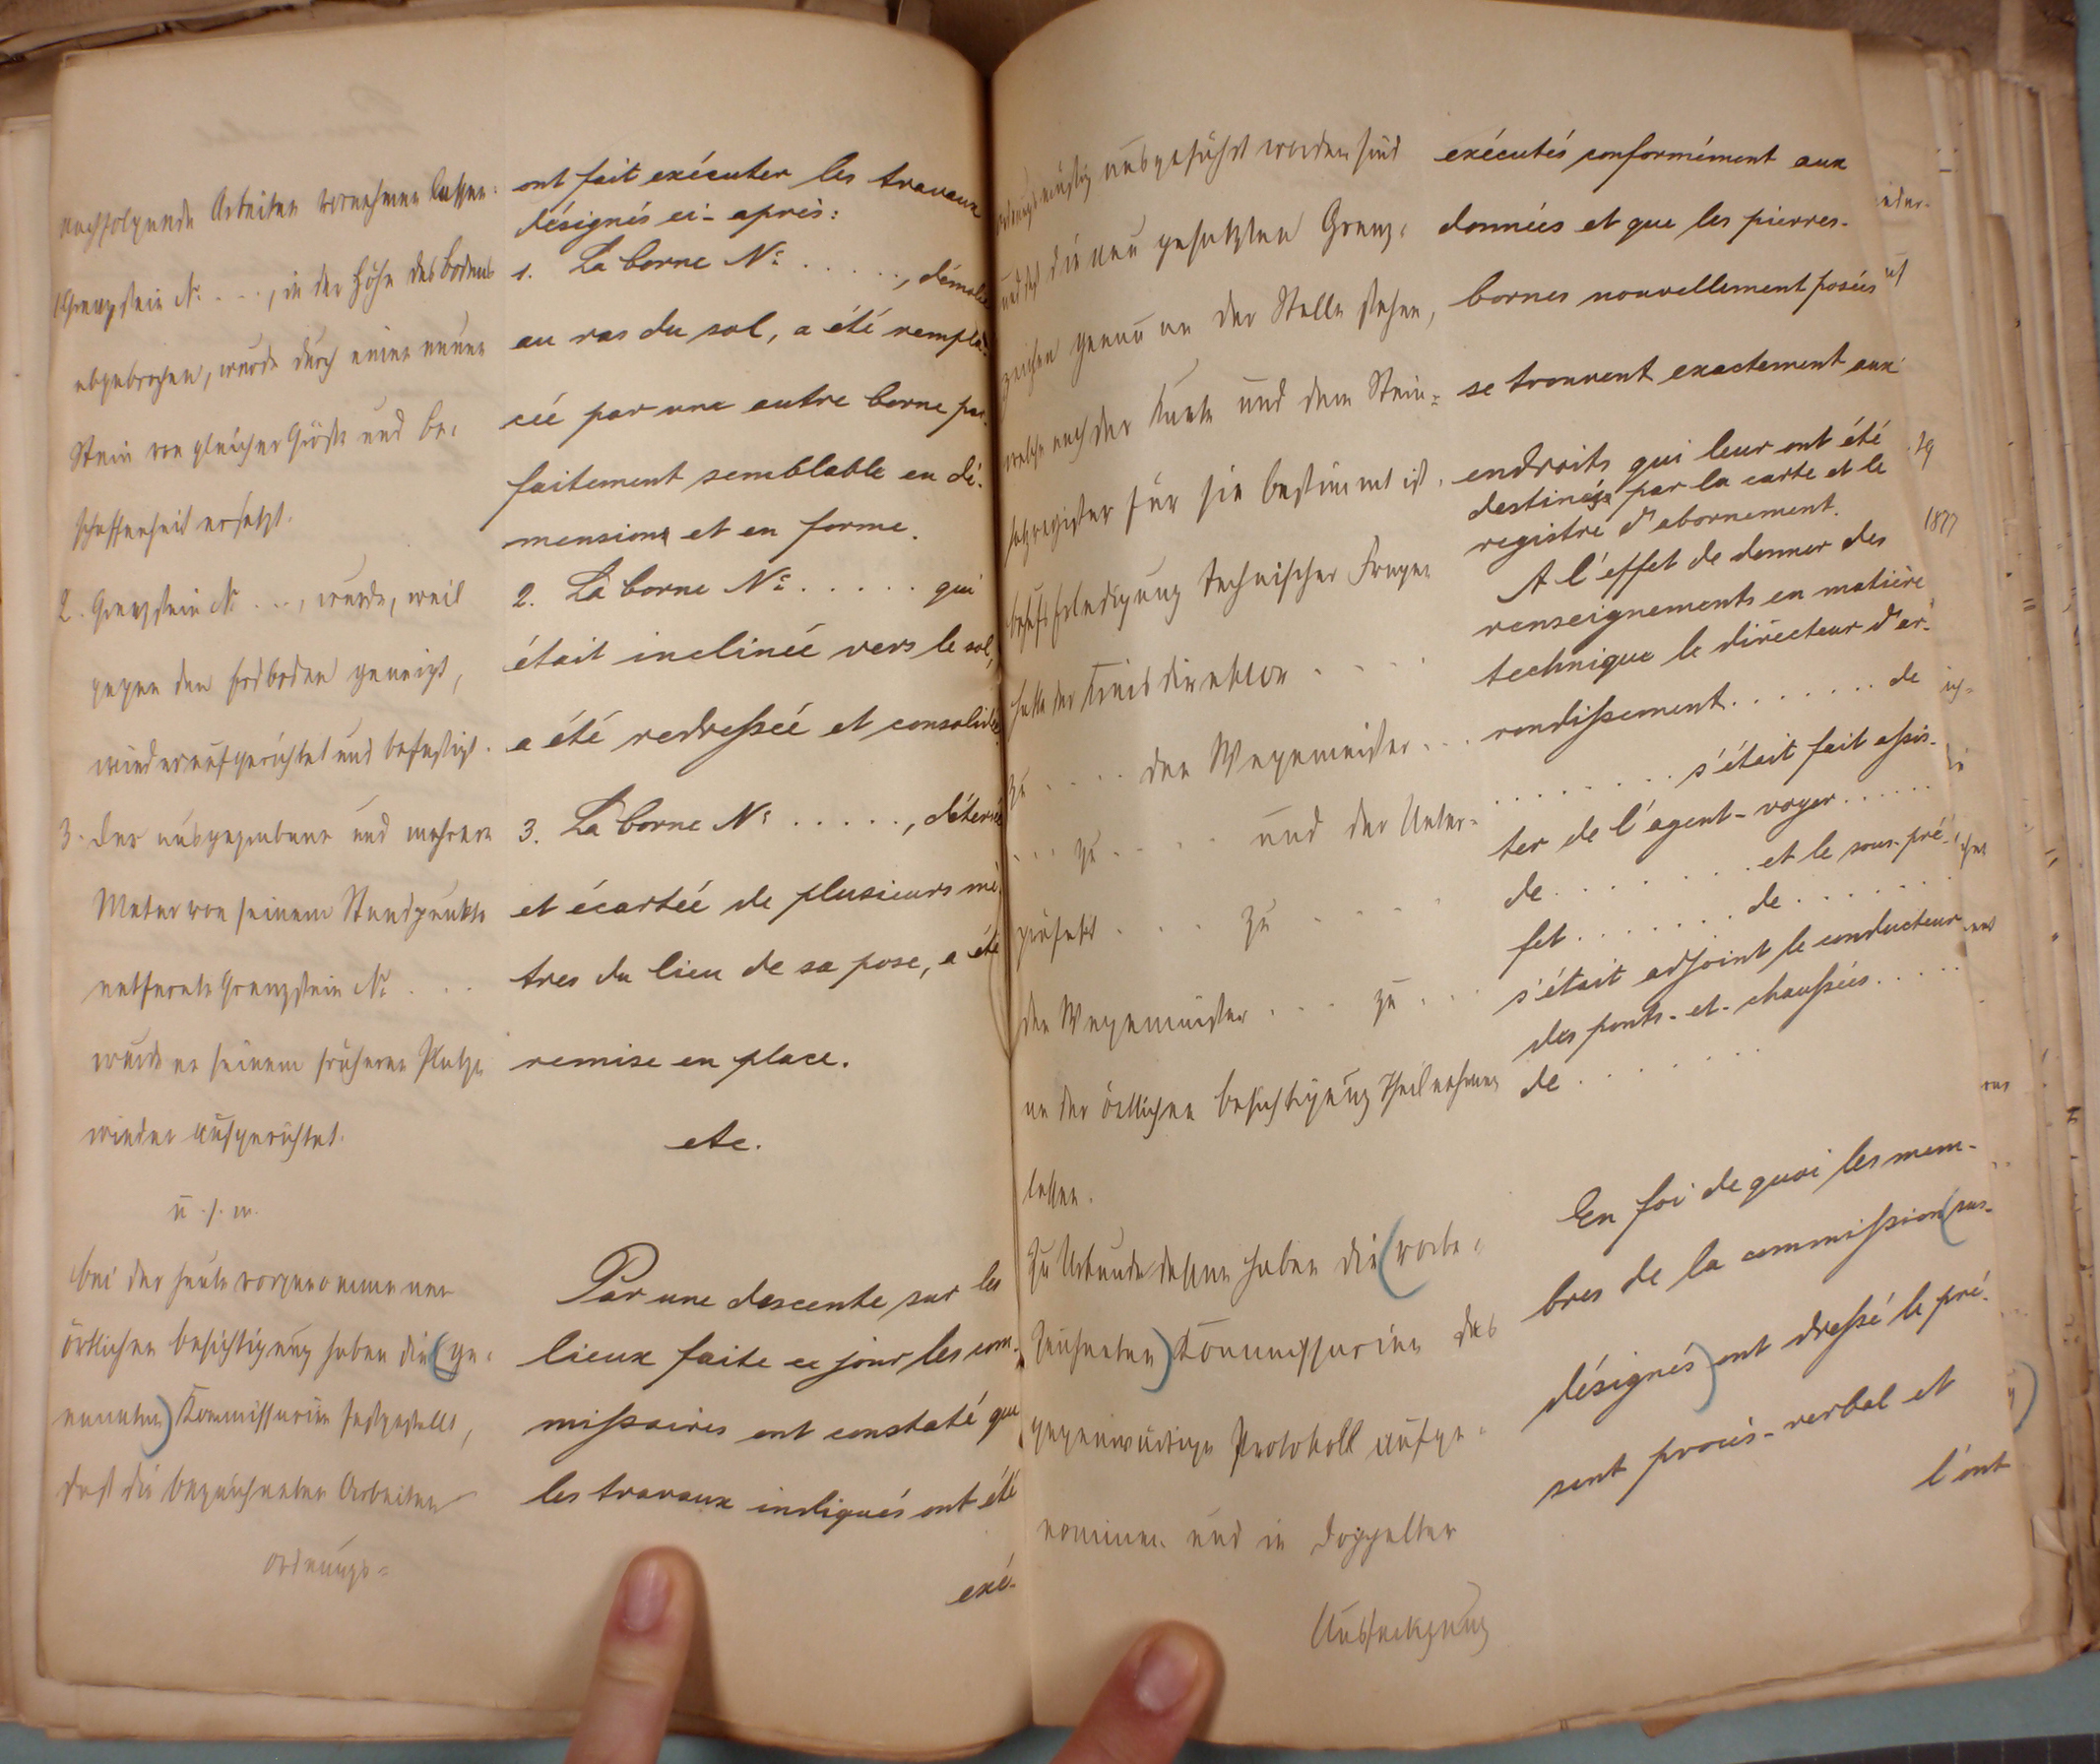 nachfolgende Arbeiten vornehmen lassen:
1. Grenzstein No. . . ., in der Höhe des Bodens
abgebrochen, wurde durch einen neuen
Stein von gleicher Größe und Be-
schaffenheit ersetzt.
2. Grenzstein No . . ., wurde, weil
gegen den Erdboden geneigt,
wieder aufgerichtet und befestigt.
3. Der ausgegrabene und mehrere
Meter von seinem Standpunkte
entfernte Grenzstein No . . .
wurde an seinem früheren Platze
wieder aufgerichtet.
u. s. w.
Bei der heute vorgenommenen
örtlichen Besichtigung haben die (ge-
nannten) Kommissarien festgestellt,
daß die bezeichneten Arbeiten
ordnungs-
ont fait exécuter les travaux
désignés ci-après:
1. La borne No. . . . . ., démolie
au ras du sol, a été rempla-
cée par une autre borne par-
faitement semblable en di-
mensions et en forme.
2. La borne No. . . . . . qui
était inclinée vers le sol,
a été redressée et consolidée.
3. La borne No. . . . . ., déterrée
et écartée de plusieurs mè-
tres du lieu de sa pose, a été
remise en place.
etc.
Par une descente sur les
lieux faite ce jour, les com-
missaires ont constaté que
les travaux indiqués ont été
exé-
ordnungsmäßig ausgeführt worden sind
und daß die neu gesetzten Grenz-
zeichen genau an der Stelle stehen,
welche nach der Karte und dem Stein-
satzregister für sie bestimmt ist.
Behufs Erledigung technischer Fragen
hatte der Kreisdirektor . . . .
zu . . . . den Wegemeister . . .
. . . zu . . . . und der Unter-
präfekt . . . . zu . . . .
den Wegemeister . . . zu . . .
an der örtlichen Besichtigung Theil nehmen
lassen.
Zu Urkunde dessen haben die (vorbe-
zeichneten) Kommissarien das
gegenwärtige Protokoll aufge-
nommen und in doppelter
Ausfertigung
exécutés conformément aux
données et que les pierres-
bornes nouvellement posées
se trouvent exactement aux
endroits qui leur ont été
destinés par la carte et le
registre d'abornement.
A l'effet de donner des
renseignements en matière
technique le directeur d'ar-
rondissement . . . . . . . de
. . . . . . . . s'était fait assis-
ter de l'agent-voyer . . . . . .
de . . . . . . . . et le sous-pré-
fet . . . . . . . de . . . . . .
s'était adjoint le conducteur
des ponts-et-chaussées . . . . .
de . . . . . .
En foi de quoi les mem-
bres de la commission (sus-
désignés) ont dressé le pré-
sent procès-verbal et
l'ont
1877